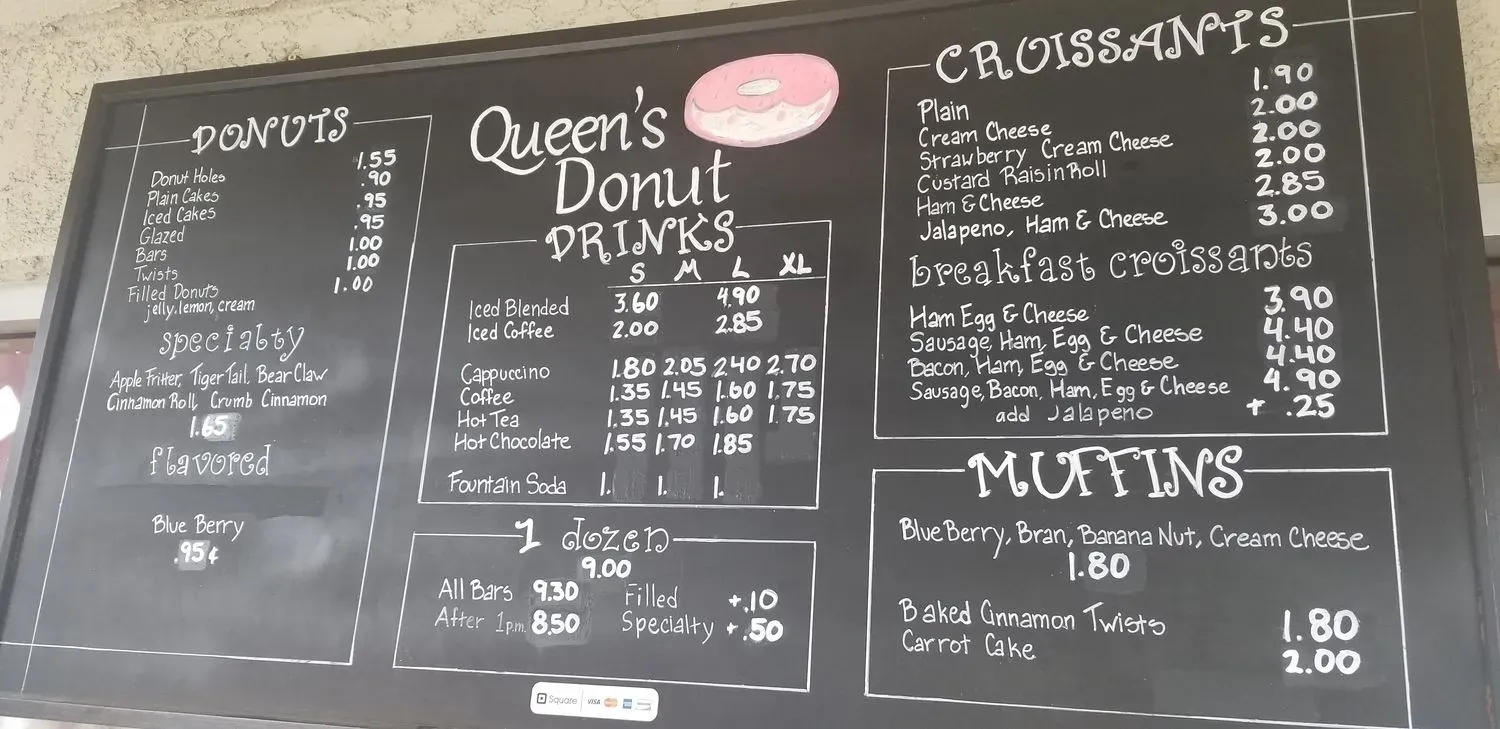 DONUTS
Donut Holes 1.55
Plain Cakes .90
Iced Cakes .95
Glazed .95
Bars 1.00
Twists 1.00
Filled Donuts 1.00
jelly, lemon, cream
specialty
Apple Fritter, Tiger Tail, Bear Claw
Cinnamon Roll, Crumb Cinnamon
1.65
flavored
Blue Berry
.95¢
Queen's
Donut
DRINKS
S M L XL
Iced Blended 3.60 4.90
Iced Coffee 2.00 2.85
Cappuccino 1.80 2.05 2.40 2.70
Coffee 1.35 1.45 1.60 1.75
Hot Tea 1.35 1.45 1.60 1.75
Hot Chocolate 1.55 1.70 1.85
Fountain Soda 1. 1. 1.
1 dozen
9.00
All Bars 9.30 Filled +.10
After 1p.m. 8.50 Specialty +.50
Square VISA
CROISSANTS
Plain 1.90
Cream Cheese 2.00
Strawberry Cream Cheese 2.00
Custard Raisin Roll 2.00
Ham & Cheese 2.85
Jalapeno, Ham & Cheese 3.00
breakfast croissants
Ham Egg & Cheese 3.90
Sausage, Ham, Egg & Cheese 4.40
Bacon, Ham, Egg & Cheese 4.40
Sausage, Bacon, Ham, Egg & Cheese 4.90
add Jalapeno + .25
MUFFINS
Blue Berry, Bran, Banana Nut, Cream Cheese
1.80
Baked Cinnamon Twists 1.80
Carrot Cake 2.00